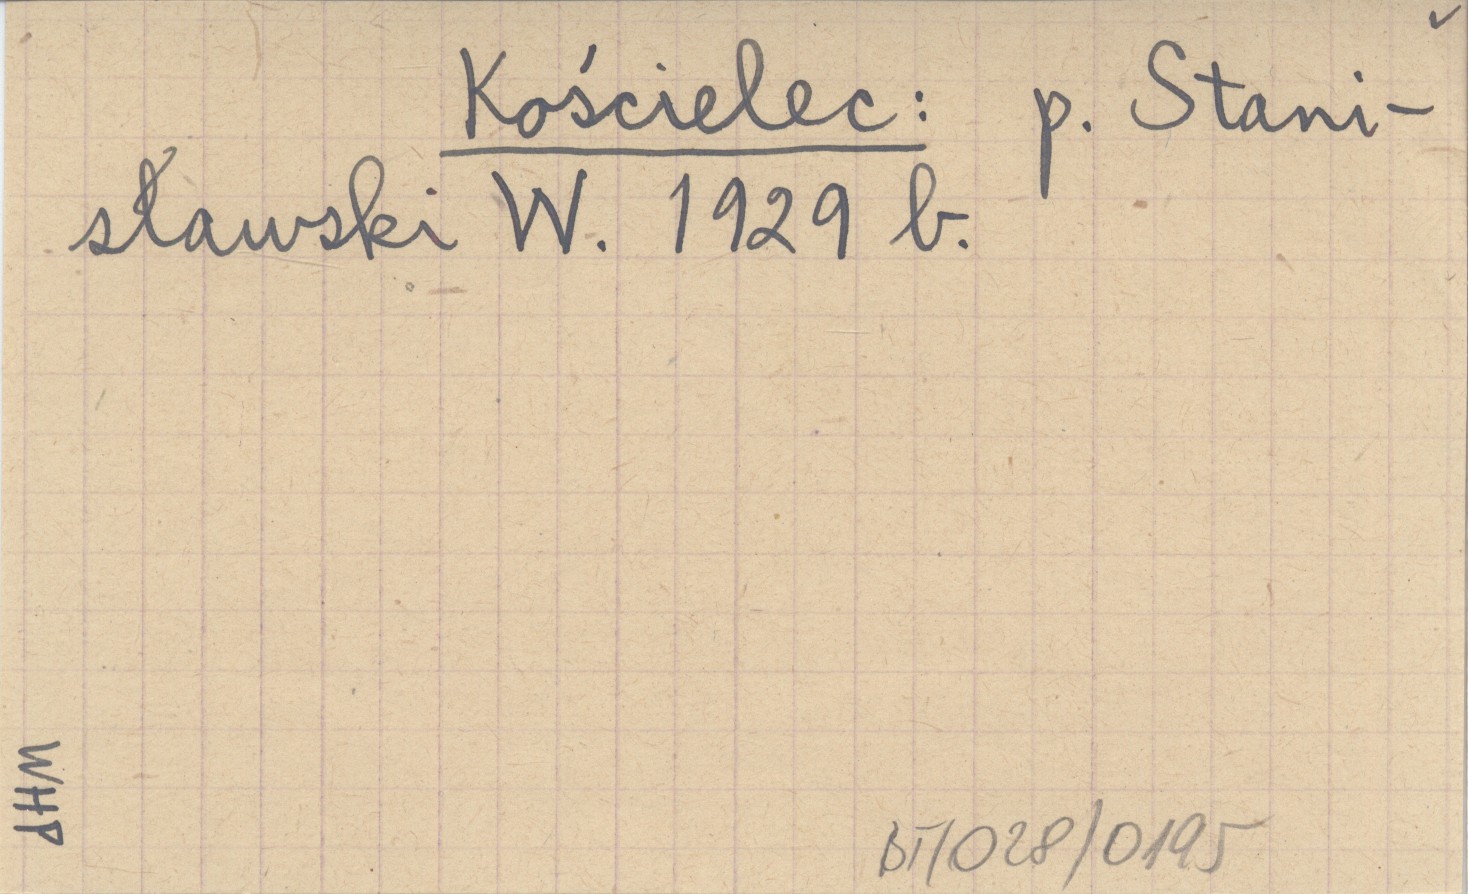 Kościelec: p. Stani-
sławski W. 1929 b.
WHP
BT/028/0195